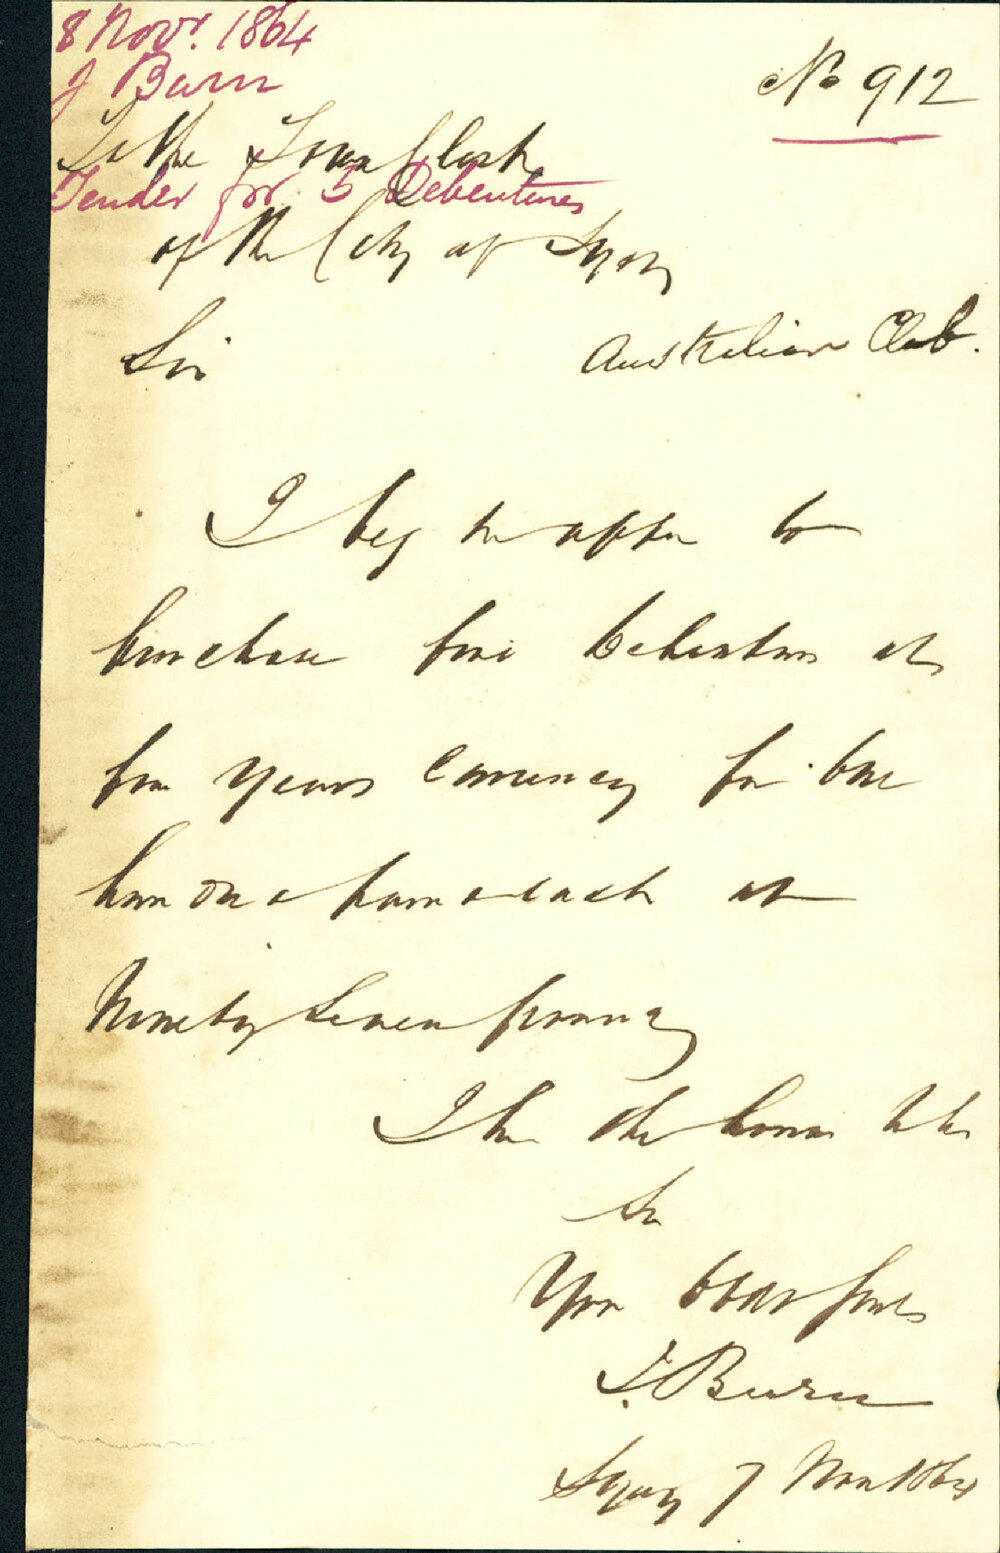 8 Novr. 1864
J Burn
No 912
To the Town Clerk
Tender for 5 Debentures
of the City of Sydney
Australian Club.
Sir
I beg to offer to
purchase five Debentures at
five years currency for the
at
Ninety Seven pounds
I have the honor to be
Sir
Your
J. Burn
Sydney 7 Nov 1864